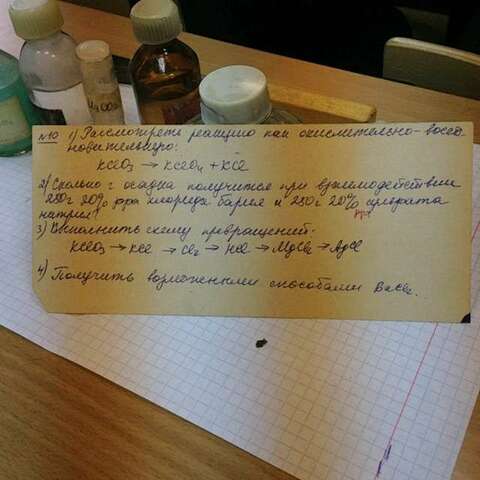 №10 1) Рассмотреть реакцию как окислительно-восста
новительную:
KClO₃ → KClO₄ + KCl
2) Сколько г осадка получится при взаимодействии
250г 20% р-ра хлорида бария и 250г 20% р-ра сульфата
натрия?
3) Выполнить схему превращений:
KClO₃ → KCl → Cl₂ → HCl → MgCl₂ → AgCl
4) Получить возможными способами BaCl₂.